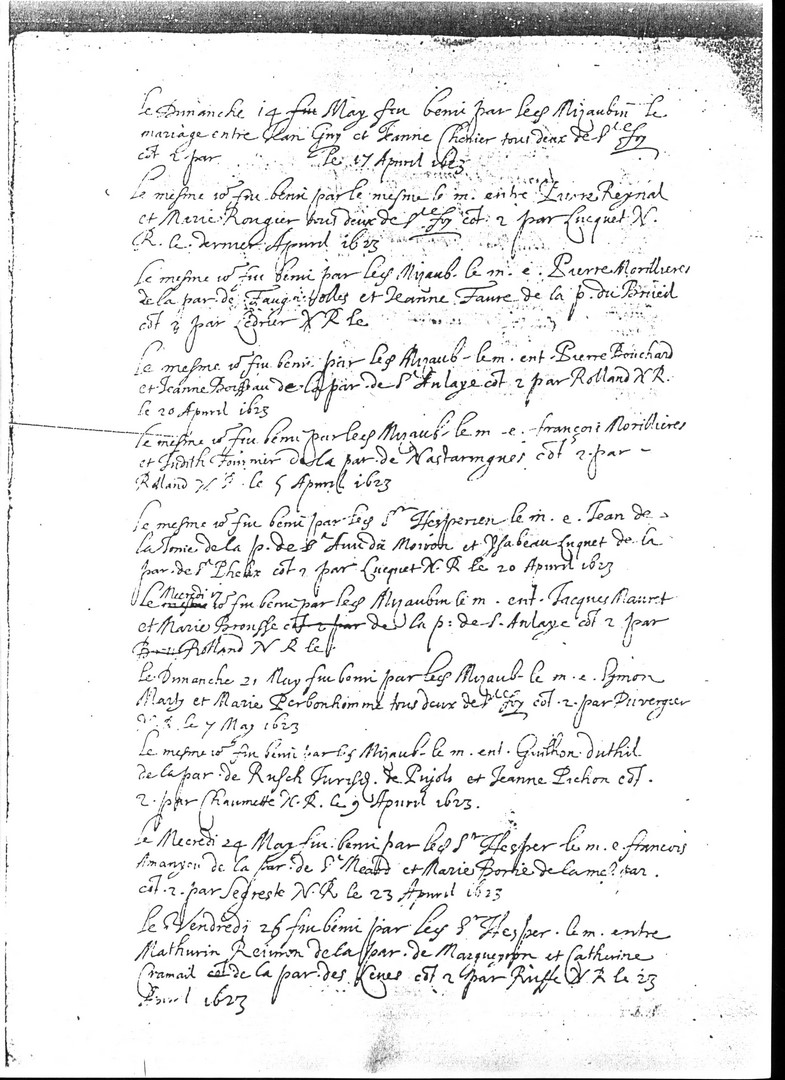 Le Dimanche 14 fut May feu beni par led Mizaubin le
mariage entre Jean Guy et Jeanne Chenier tous deux de Ste foy
cot 2 par le 17 Apuril 1623
Le mesme jor feu beni par le mesme le m. entre Pierre Reynal
et Marie Rougier tous deux de Ste foy cot. 2 par Lucquet N.
R. le dernier Apuril 1623
Le mesme jor feu beni par led Mizaub. le m. e. Pierre Morillieres
de la par. de et Jeanne Faure de la p. du
cot 2 par Ledrier N R le
Le mesme jor feu beni par led Mizaub. le m. ent. Pierre Bouchard
et Jeanne de la par. de St Aulaye cot 2 par Rolland N R.
le 20 Apuril 1623
Le mesme jor feu beni par led Mizaub. le m. e. françois Morillieres
et Judith de la par. de Nastaringues cot 2. par -
Rolland N R. le 5 Apuril 1623
Le mesme jor feu beni par led Sr Hesperien le m. e. Jean de
la de la p. de St du Moiron et Ysabeau Luquet de la
par. de St Phelix cot 2 par Lucquet N. R le 20 Apuril 1623
Mecredi 17
Le mesme jor feu beni par led Mizaubin le m. ent. Jacques Mauret
et Marie Brousse cot 2 par de la p: de S. Aulaye cot 2 par
Rolland N R le
Le Dimanche 21 May feu beni par led Mizaub. le m. e. Symon
Marty et Marie Perbonhomme tous deux de Ste foy cot. 2. par Duvergier
N. R. le 7 May 1623
Le mesme jor feu beni par led Mizaub. le m. ent. Guilhon duthil
de la par. de Rusch Jurisd. de Pujols et Jeanne Pichon cot.
2. par Chaumette N. R. le 9 Apuril 1623.
Le Mecredi 24 May feu beni par led Sr Hesper le m. e françois
Amanyeu de la par. de St Meard et Marie de la me. par.
cot. 2. par Segreste N R le 23 Apuril 1623
Le Vendredi 26 feu beni par led Sr Hesper. le m. entre
Mathurin Reimon de la par. de Margueyron et Catherine
Cramail de la par. des Leves cot 2 par Ruffe N R le 23
Apuril 1623